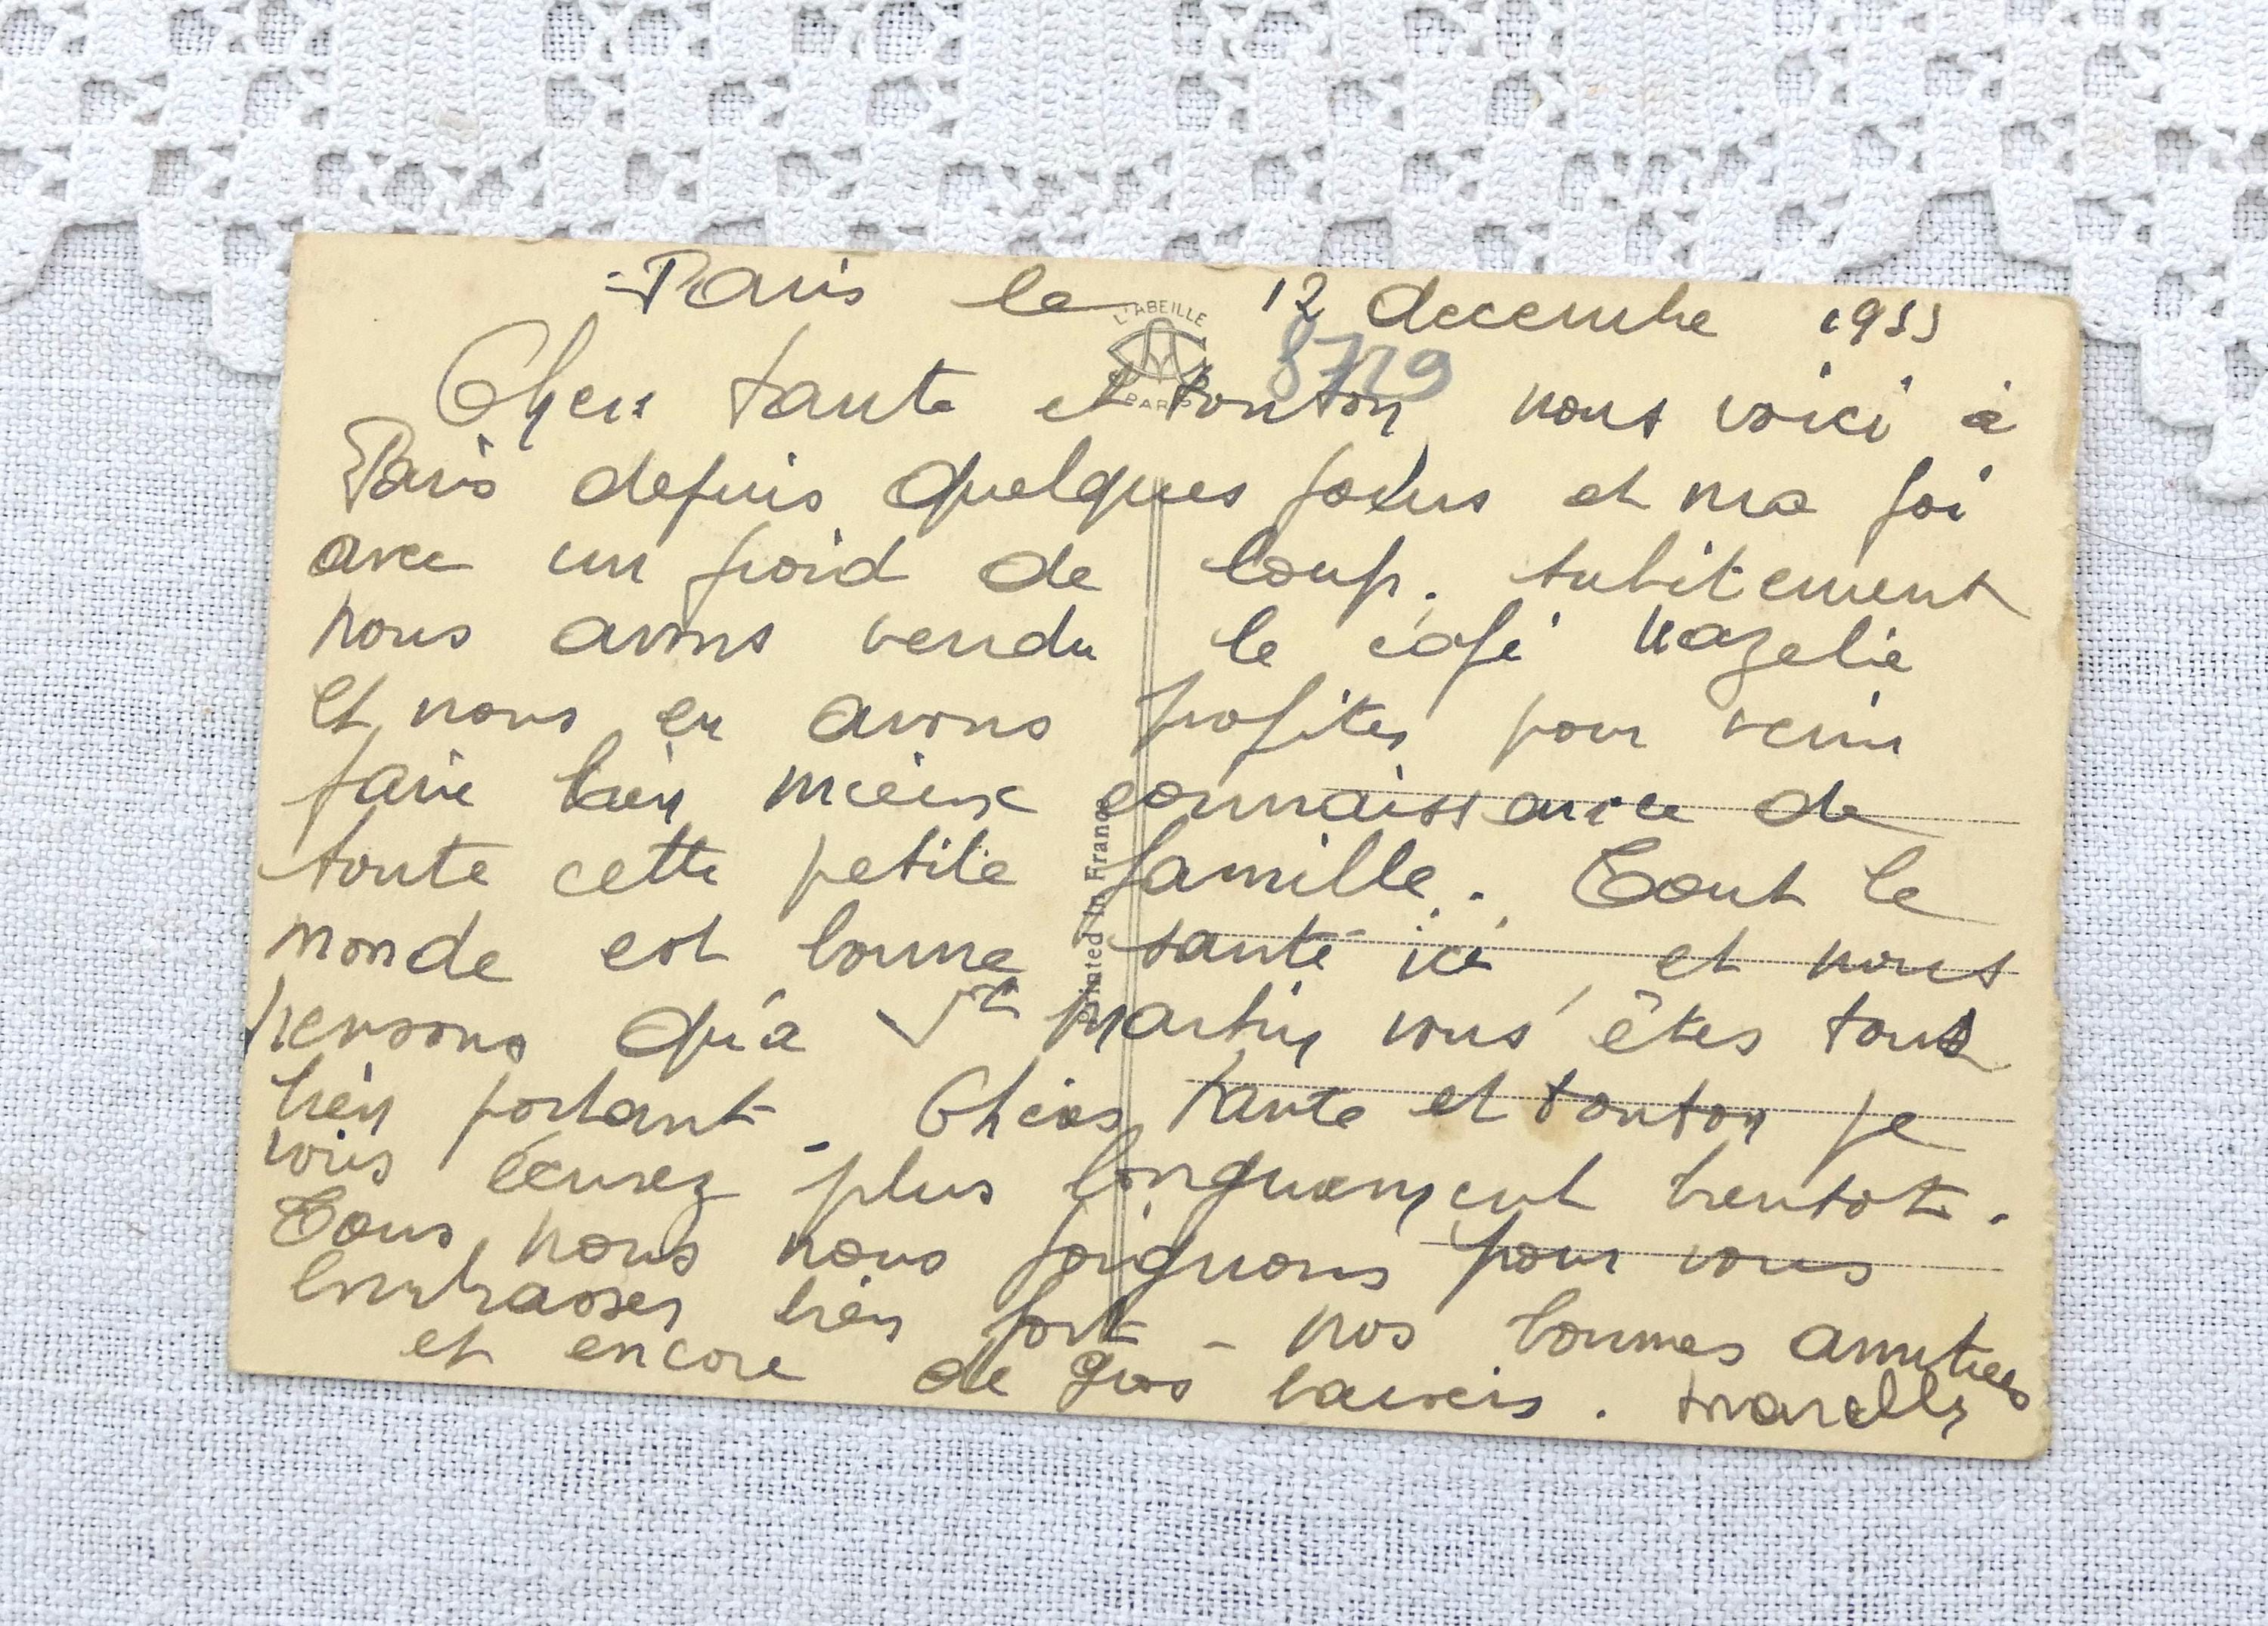 Paris le 12 decembre 1933
L'ABEILLE
PARIS
8729
Chers tante et tonton nous voici à
Paris depuis quelques jours et ma foi
avec un froid de loup. subitement
nous avons vendu le café
et nous en avons profiter pour venir
faire bien mieux connaissance de
toute cette petite famille. Tout le
monde est bonne santé ici, et nous
pensons qu'a St Martin vous êtes tous
bien portant. Chers tante et tonton je
vous écrirez plus longuement bientot.
Tous, nous nous joignons pour vous
Embrasser bien fort - nos bonnes amities
et encore de gros baisers.
Printed in France